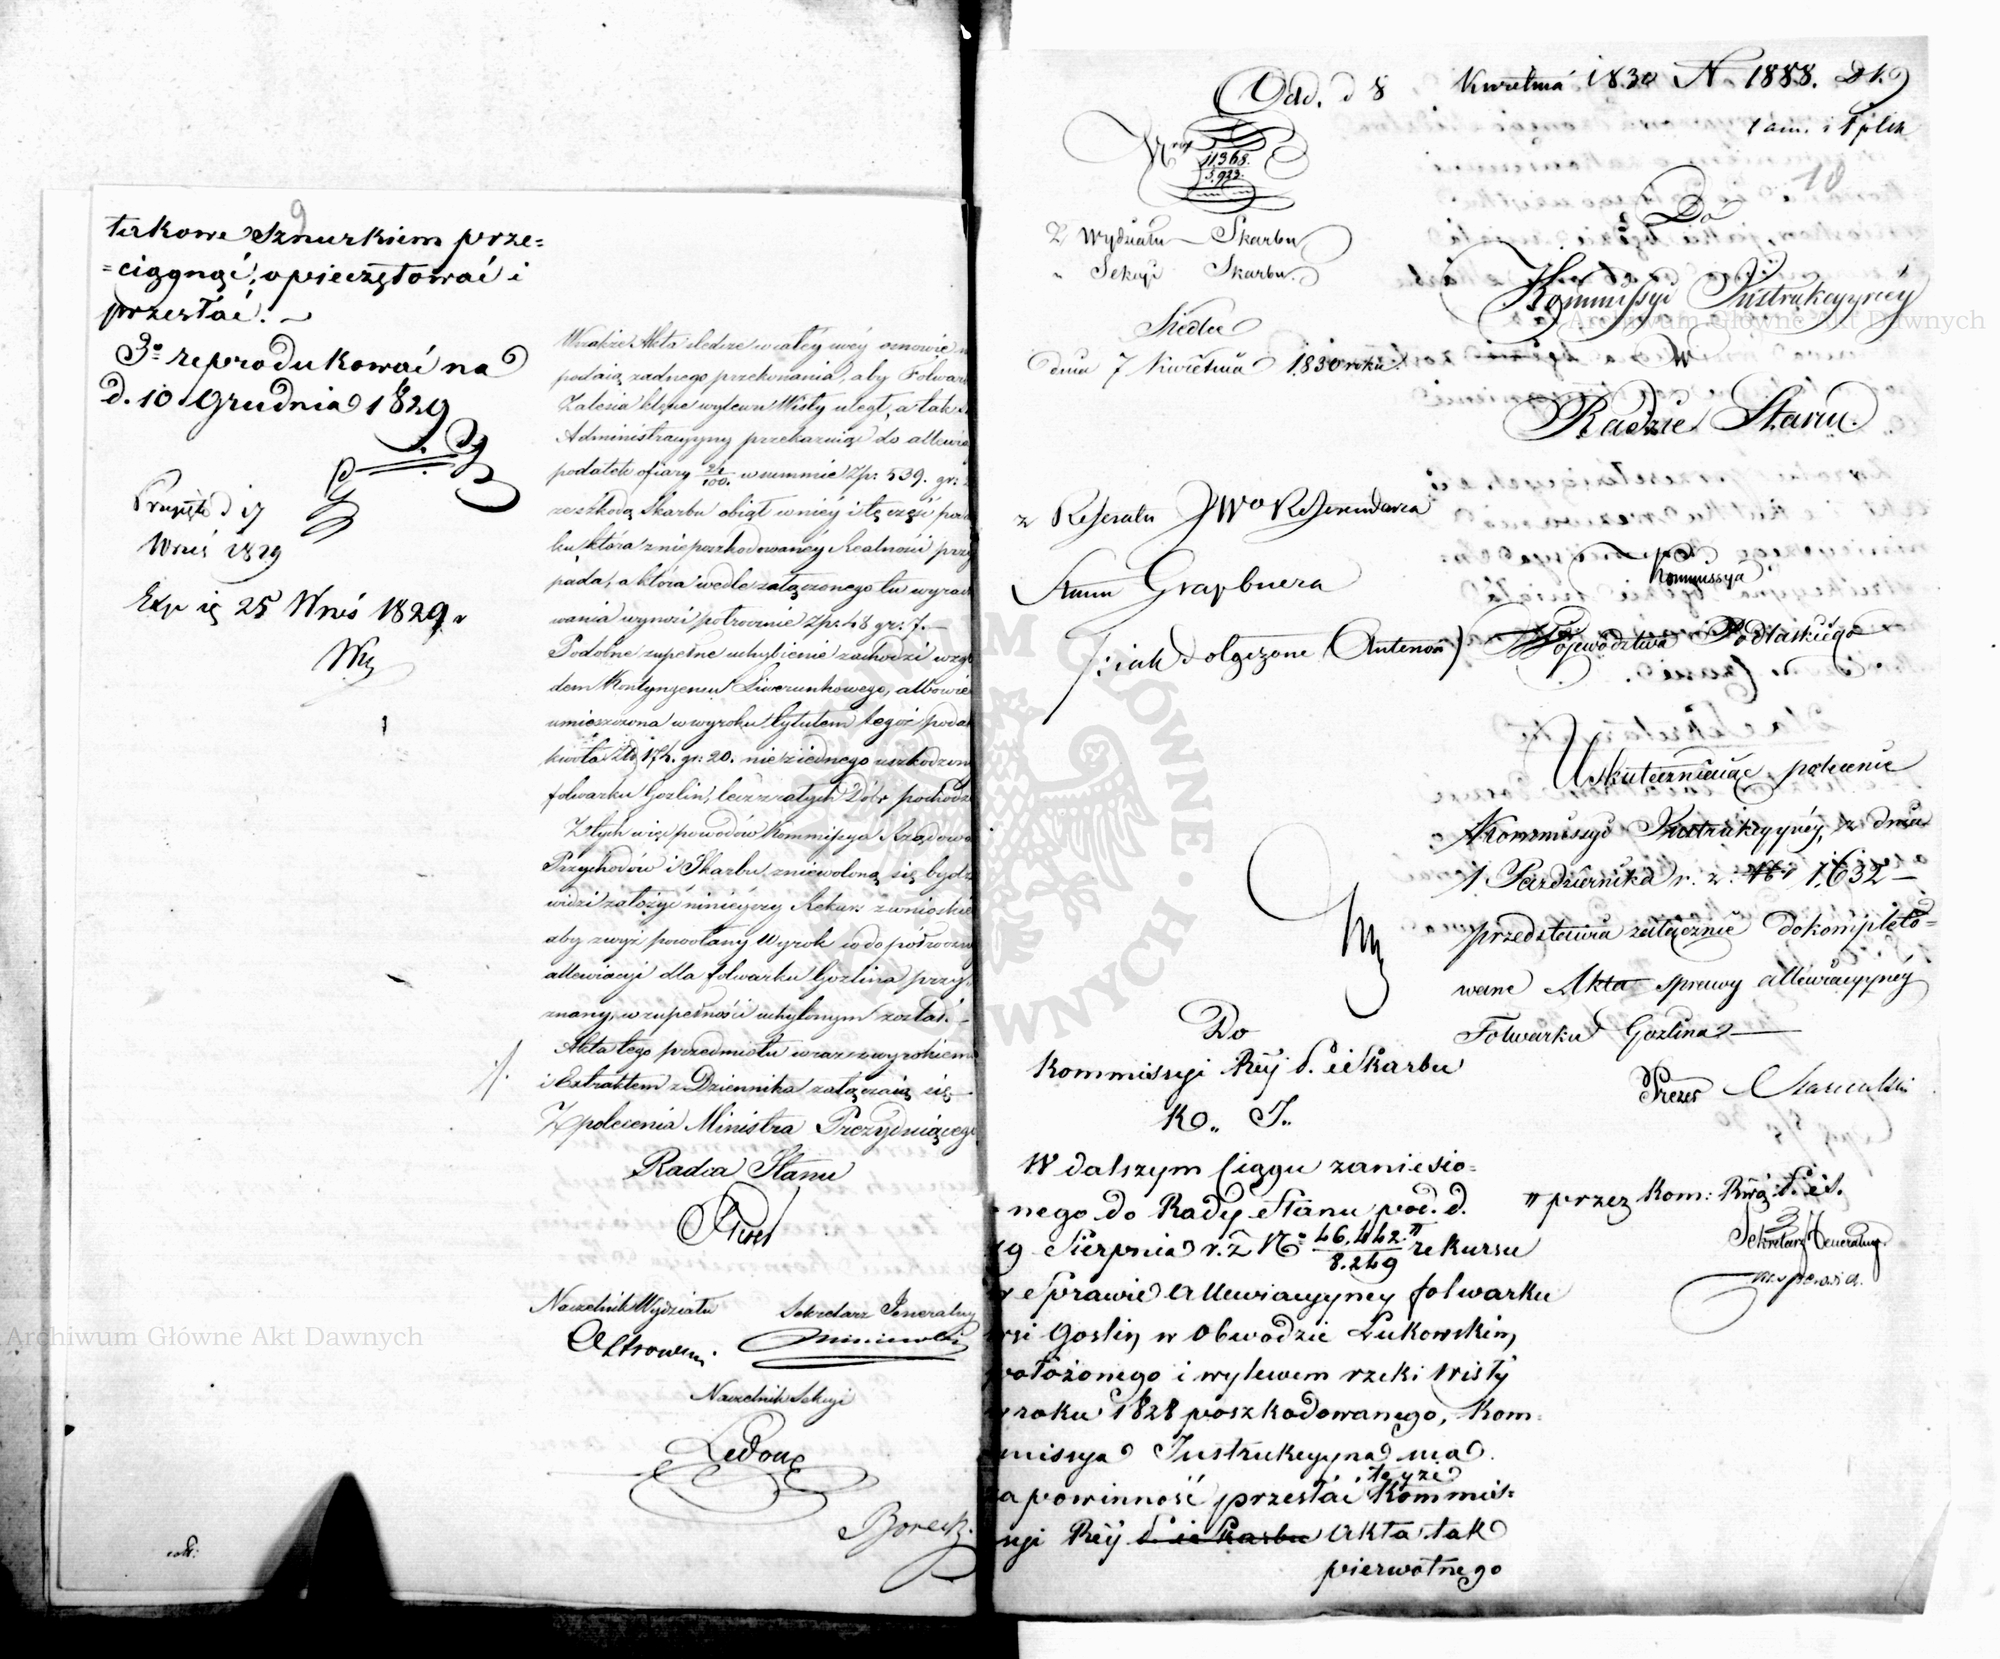 9
terkowe Sznurkiem prze=
=ciągnąć, opieczętować i
przesłać. —
3o reprodukować na
d. 10 Grudnia 1829
d 17
Wrześ 1829
Exp ię 25 Wrześ 1829 r
Wszakże Akta śledcze w całey swéy osnowie
podaią żadnego przekonania, aby Folwar
Zalesia klęsce wylewu Wisły uległ, a tak
Administracyyny przekazuiąc do allewia
podatek ofiary 24/100 w summie Zp: 539. gr:
ze szkodą Skarbu obiął w niéy i tę część poda
ku która z nieposzkodowanéy Realności przy
pada, a która wedle załączonego tu wyrach
wania wynosi potrocznie Zp: 48 gr: 7. —
Podobne zupełne uchybienie zachodzi wzglę
dem Kontyngensu Liwerunkowego, albowie
umieszczona w wyroku tytułem tegoż podat
kwota Złp 174. gr: 20. nie z iednego uszkodzon
folwarku Gozlin, lecz z całych Dóbr pochodzi
Z tych więc powodów Kommissya Rządowa
Przychodów i Skarbu zniewoloną się bydź
widzi założyć ninieyszy Rekurs z wnioskie
aby zwyż powołany Wyrok w do półroczn
allewiacyi dla folwarku Gozlina przy=
znany, w zupełności uchylonym został. —
Akta tego przedmiotu wraz z wyrokiem
i Extraktem z Dziennika załączaią się —
Z polecenia Ministra Prezyduiącego
Radca Stanu
Naczelnik Wydziału Sekretarz Jeneralny
Naczelnik Sekcyi
Ledoux
Borecki
Odd. d 8 Kwietnia 1830 N. 1888. Dt. 9
1 am. i 1 plik
10
Nro 11.368. / 5.923.
Z Wydziału Skarbu
" Sekcyi Skarbu.
Siedlce
dnia 7 Kwietnia 1830 roku.
Do
Kommissyi Instrukcyyney
w
Radzie Stanu.
z Referatu JWo Referendarza
Stanu Grapbnera
Kommissya
Województwa Podlaskiego
Uskuteczniaiąc polecenie
Kommissyi Instrukcyynéy, z dnia
1 Października r. z. No 1,632 —
przedstawia załącznie dokompleto=
wane Akta sprawy allewiacyyney
Folwarku Gozlina —
Prezes
Sekretarz Jeneralny
Do
Kommissyi Rząj P. i Skarbu
K. J.
W dalszym ciągu zaniesio=
nego do Rady Stanu pod. d.
19 Sierpnia r. z No 46,442 / 8.249 " rekursu
" przez Kom: Rwą P. i S.
w Sprawie Allewiacyyney folwarku
wsi Goslin, w Obwodzie Łukowskim,
położonego i wylewem rzeki Wisły
w roku 1828 poszkodowanego, Kom=
missya Instrukcyyna ma
za powinność przesłać teyże Kommis=
syi Rząj P. i Skarbu Akta tak
pierwotnego
Archiwum Główne Akt Dawnych
Archiwum Główne Akt Dawnych